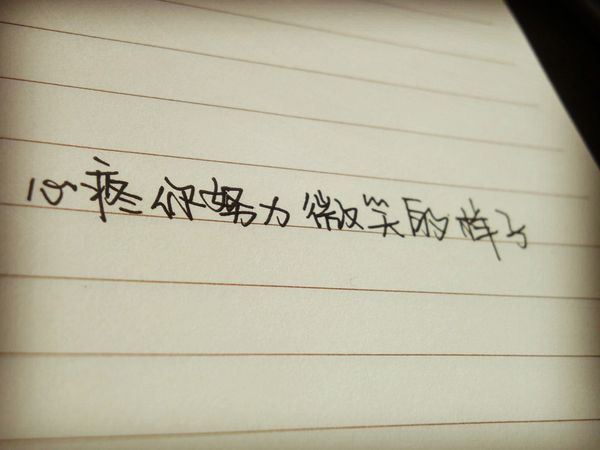 心疼你努力微笑的样子